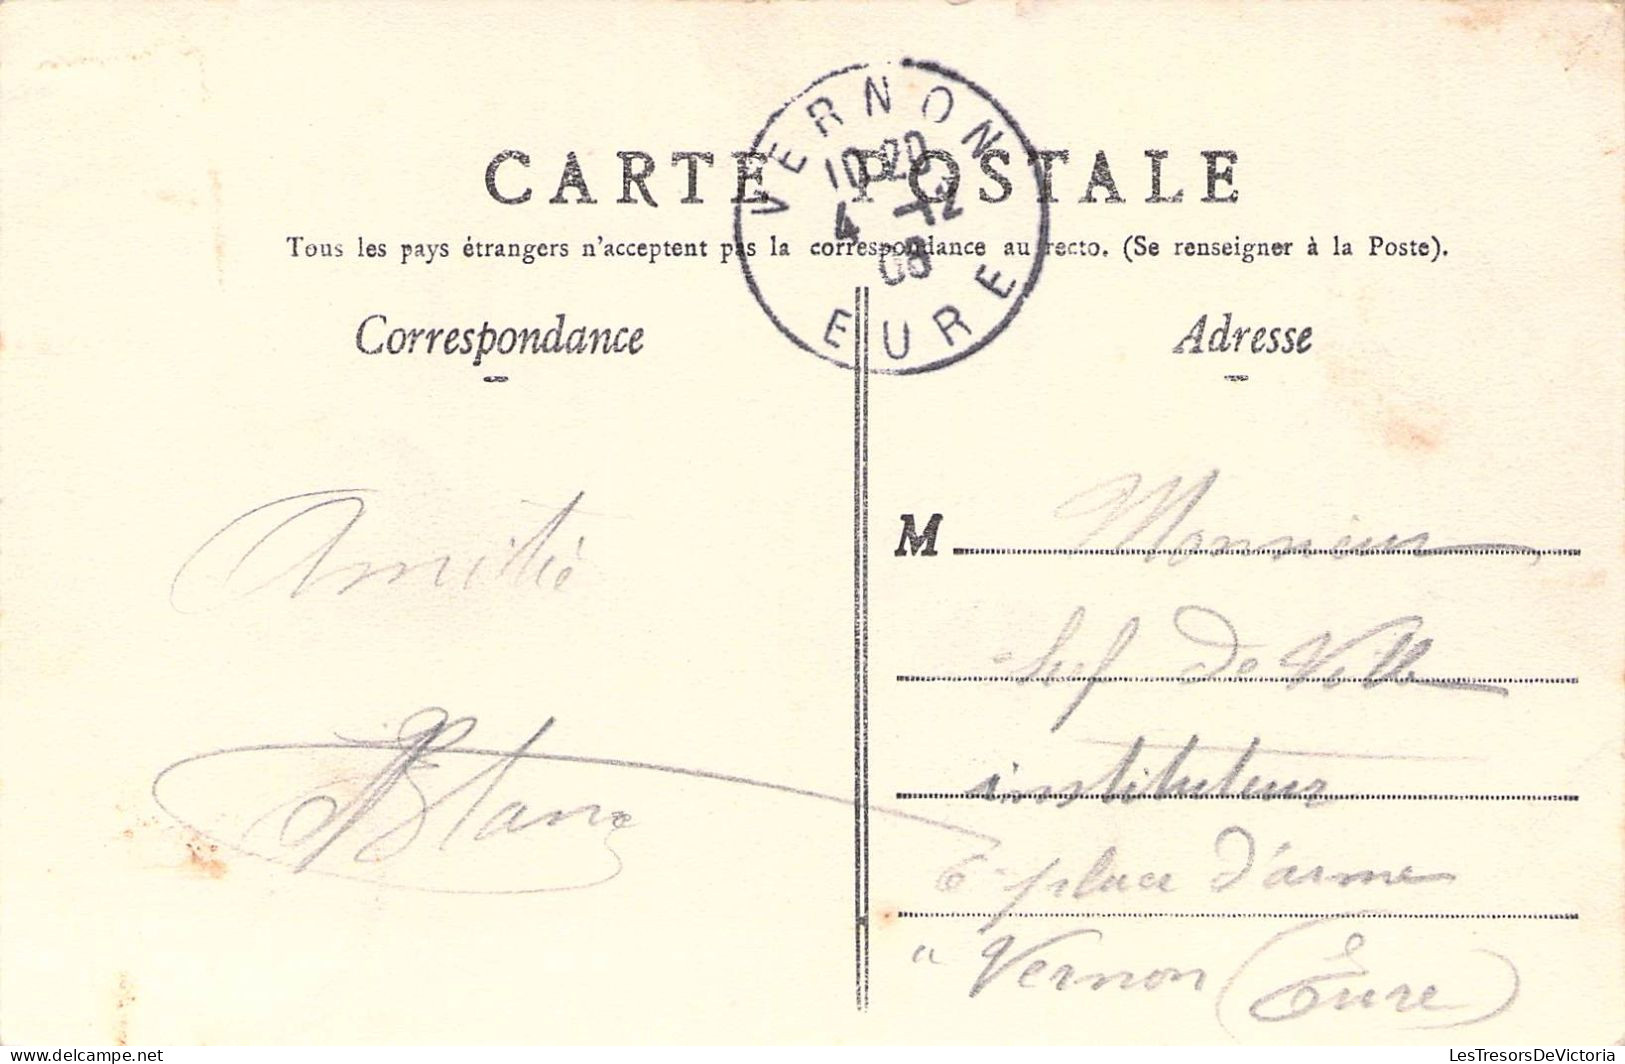 CARTE POSTALE
Tous les pays étrangers n'acceptent pas la correspondance au recto. (Se renseigner à la Poste).
VERNON
10 20
4 -12
08
EURE
Correspondance
Amitié
Blanc
Adresse
M Monsieur
chef de Ville
instituteur
6 place d'arme
à Vernon (Eure)
delcampe.net
LesTresorsDeVictoria